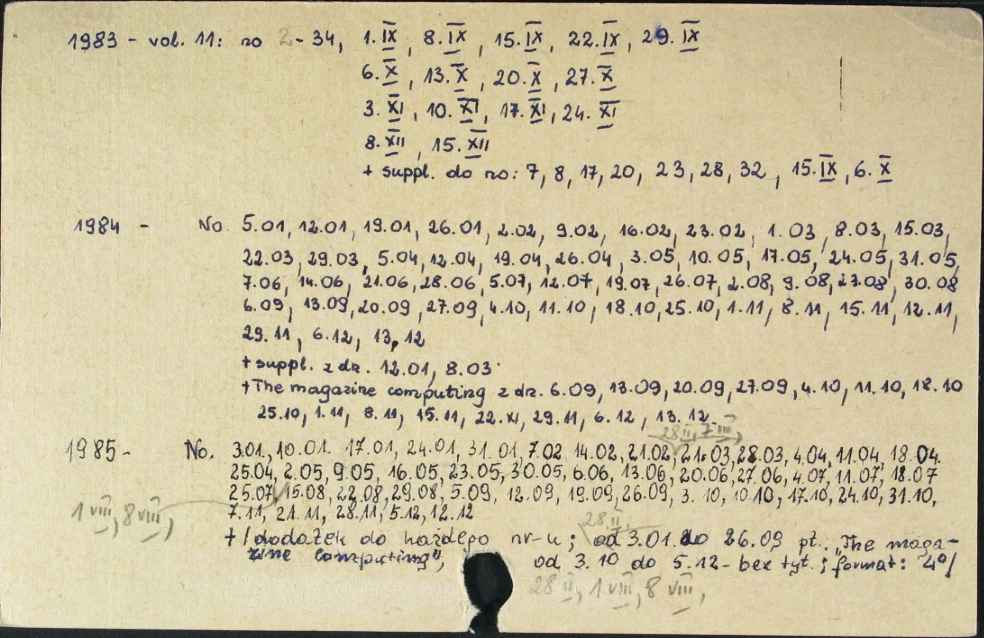 1983 - vol. 11: no 2-34, 1.IX, 8.IX, 15.IX, 22.IX, 29.IX
6.X, 13.X, 20.X, 27.X
3.XI, 10.XI, 17.XI, 24.XI
8.XII, 15.XII
+ suppl. do no: 7, 8, 17, 20, 23, 28, 32, 15.IX, 6.X
1984 - No. 5.01, 12.01, 19.01, 26.01, 2.02, 9.02, 16.02, 23.02, 1.03, 8.03, 15.03,
22.03, 29.03, 5.04, 12.04, 19.04, 26.04, 3.05, 10.05, 17.05, 24.05, 31.05,
7.06, 14.06, 21.06, 28.06, 5.07, 12.07, 19.07, 26.07, 2.08, 9.08, 23.08, 30.08
6.09, 13.09, 20.09, 27.09, 4.10, 11.10, 18.10, 25.10, 1.11, 8.11, 15.11, 12.11,
29.11, 6.12, 13.12
+ suppl. z dn. 12.01, 8.03
+ The magazine computing z dn. 6.09, 13.09, 20.09, 27.09, 4.10, 11.10, 18.10
25.10, 1.11, 8.11, 15.11, 22.XI, 29.11, 6.12, 13.12
28 II, 7 III,
1985 - No. 3.01, 10.01. 17.01, 24.01, 31.01, 7.02, 14.02, 21.02, 21.03, 28.03, 4.04, 11.04, 18.04.
25.04, 2.05, 9.05, 16.05, 23.05, 30.05, 6.06, 13.06, 20.06, 27.06, 4.07, 11.07, 18.07
25.07, 15.08, 22.08, 29.08, 5.09, 12.09, 19.09, 26.09, 3.10, 10.10, 17.10, 24.10, 31.10,
1 VIII, 8 VIII, 7.11, 21.11, 28.11, 5.12, 12.12
28 II
+ /dodatek do każdego nr-u; od 3.01. do 26.09 pt. „The maga-
zine computing", od 3.10 do 5.12 - bez tyt.; format: 4°/
28 II, 1 VIII, 8 VIII,